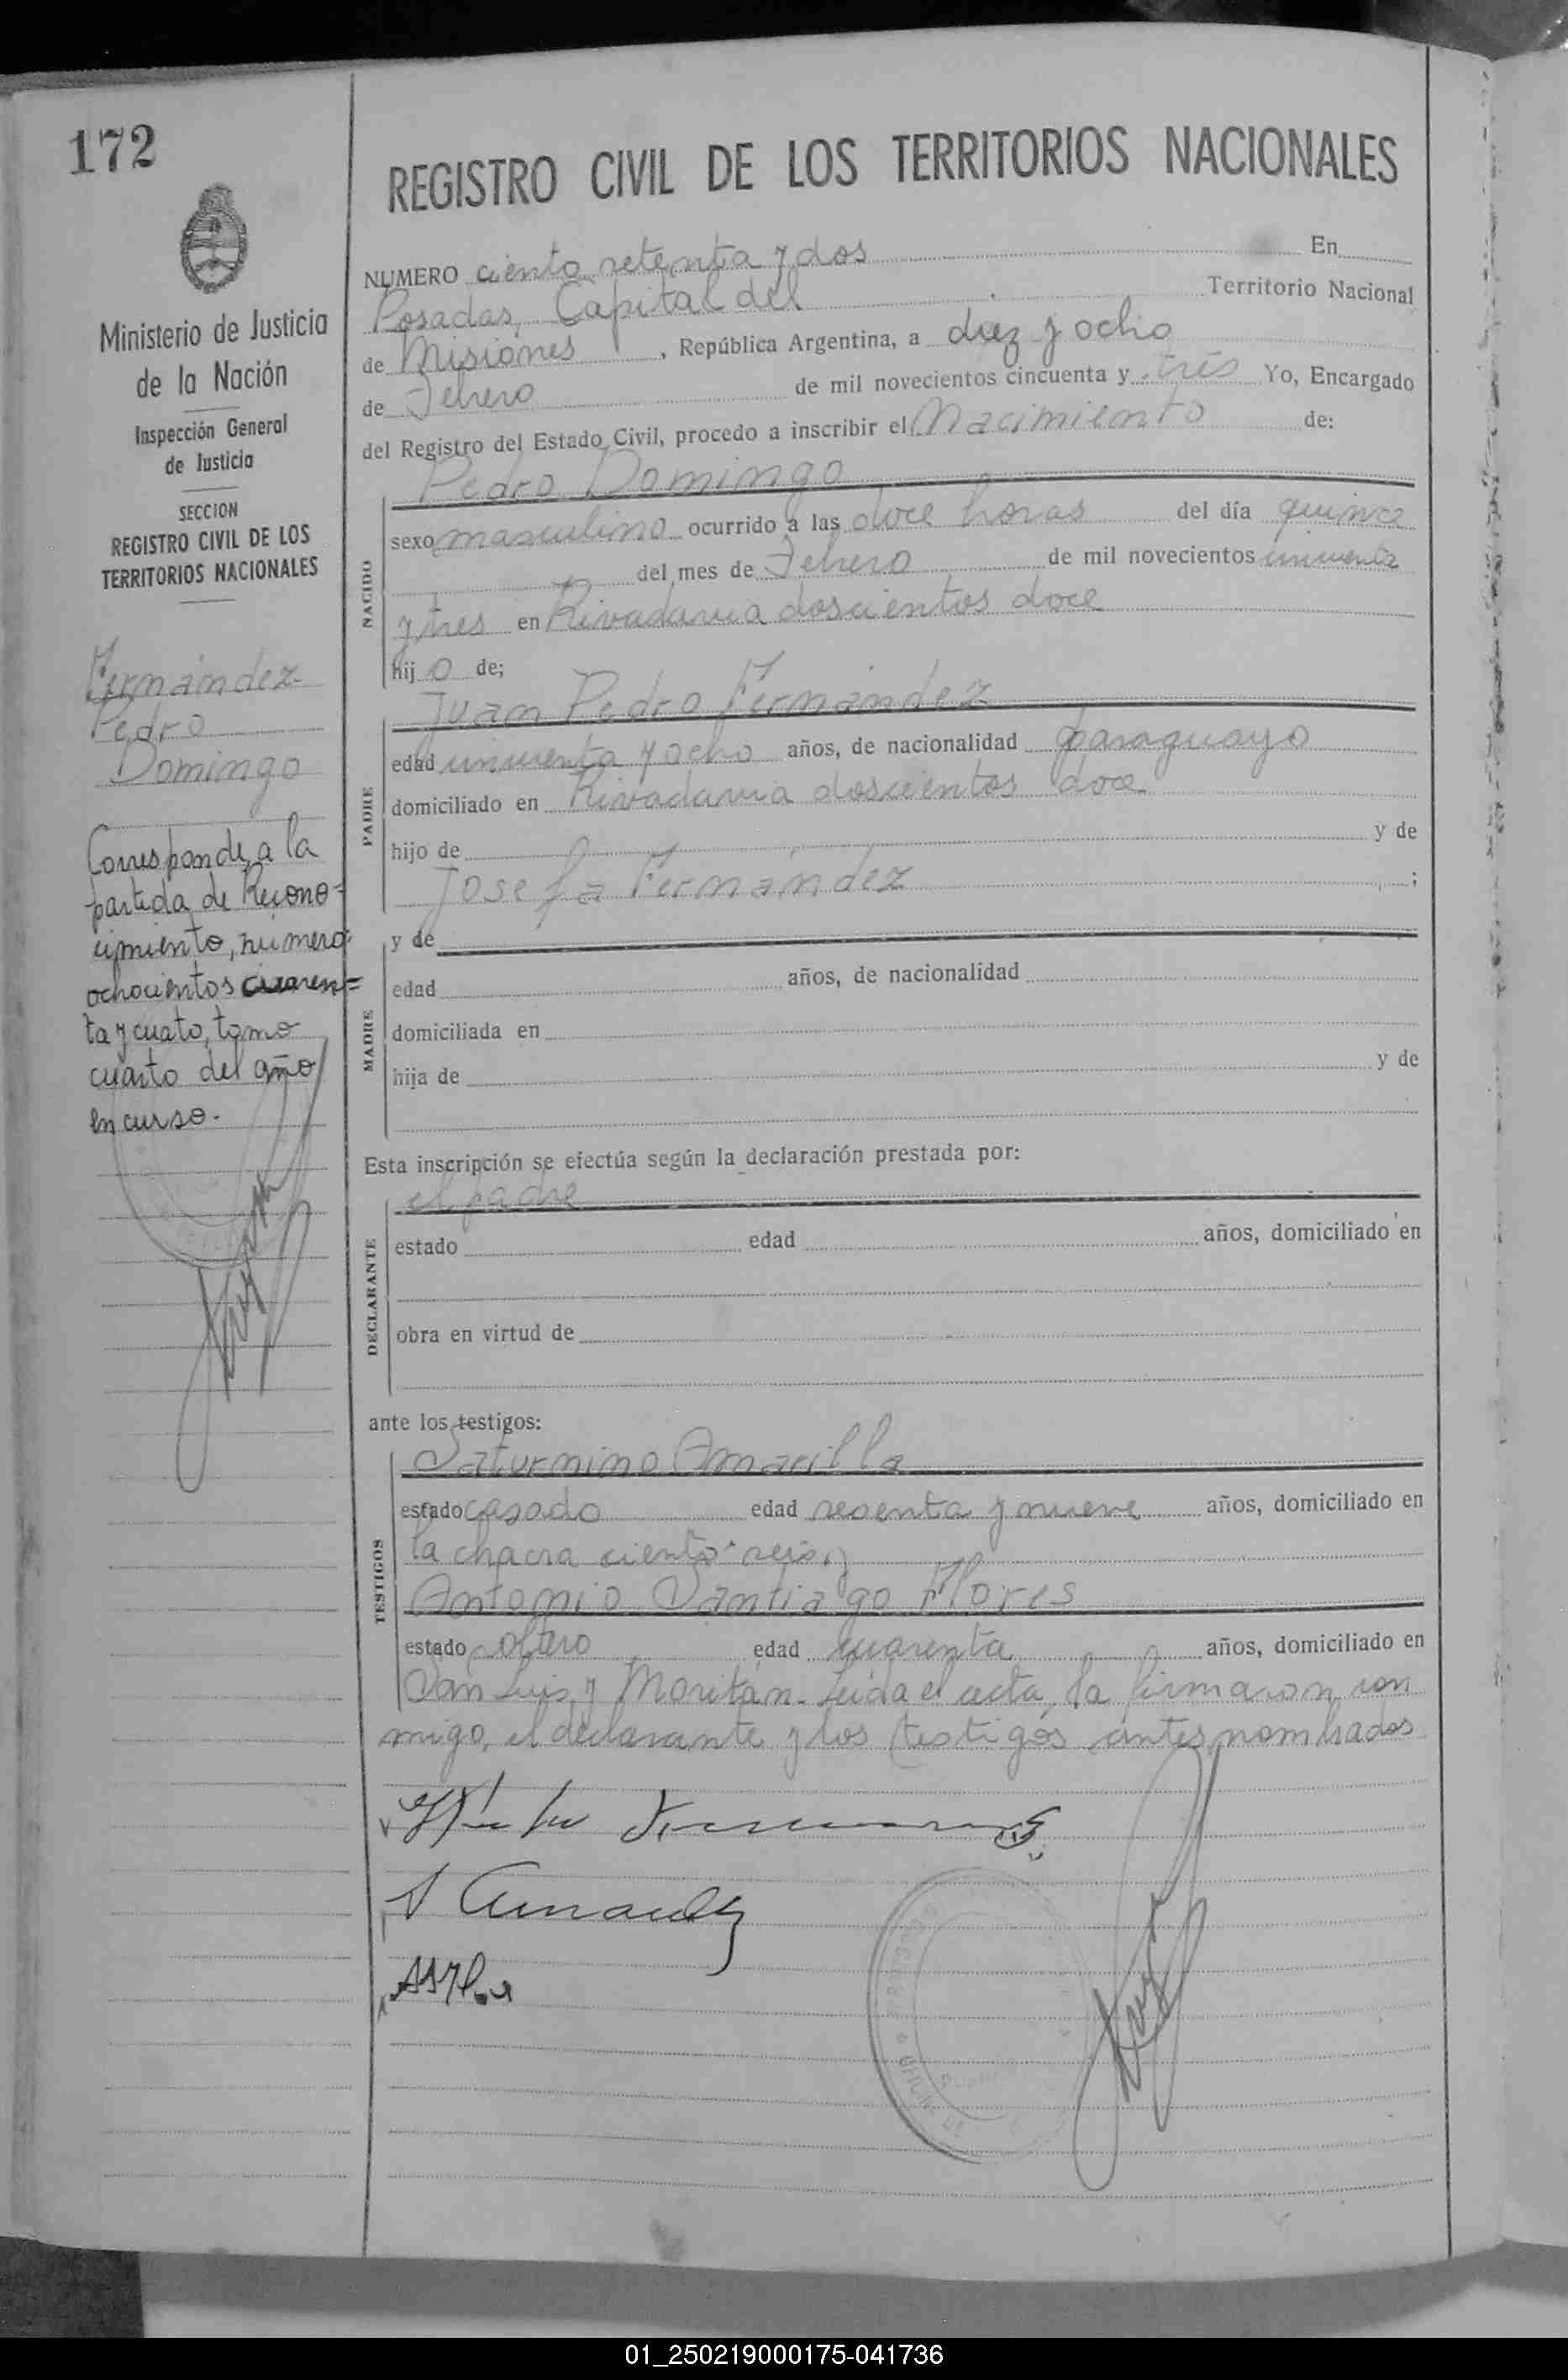 172
Ministerio de Justicia
de la Nación
Inspección General
de Justicia
SECCION
REGISTRO CIVIL DE LOS
TERRITORIOS NACIONALES
Fernández
Pedro
Domingo
Corresponde a la
partida de Recono-
cimiento, número
ochocientos cuaren=
ta y cuato, tomo
cuarto del año
en curso.-
REGISTRO CIVIL DE LOS TERRITORIOS NACIONALES
NUMERO ciento setenta y dos En
Posadas, Capital del Territorio Nacional
de Misiones, República Argentina, a diez y ocho
de Febrero de mil novecientos cincuenta y tres Yo, Encargado
del Registro del Estado Civil, procedo a inscribir el Nacimiento de:
Pedro Domingo
NACIDO
sexo masculino ocurrido a las doce horas del día quince
del mes de Febrero de mil novecientos cincuenta
y tres en Rivadavia doscientos doce
hij o de;
Juan Pedro Fernández
PADRE
edad cincuenta y ocho años, de nacionalidad paraguayo
domiciliado en Rivadavia doscientos doce
hijo de y de
Josefa Fernández ;
y de
MADRE
edad años, de nacionalidad
domiciliada en
hija de y de
Esta inscripción se efectúa según la declaración prestada por:
el padre
DECLARANTE
estado edad años, domiciliado en
obra en virtud de
ante los testigos:
Saturnino Amarilla
TESTIGOS
estado casado edad sesenta y nueve años, domiciliado en
la chacra ciento seis, y
Antonio Santiago Flores
estado soltero edad cuarenta años, domiciliado en
San Luis y Moritán. Leída el acta, la firmaron con
migo, el declarante y los testigos antes nombrados
01_250219000175-041736